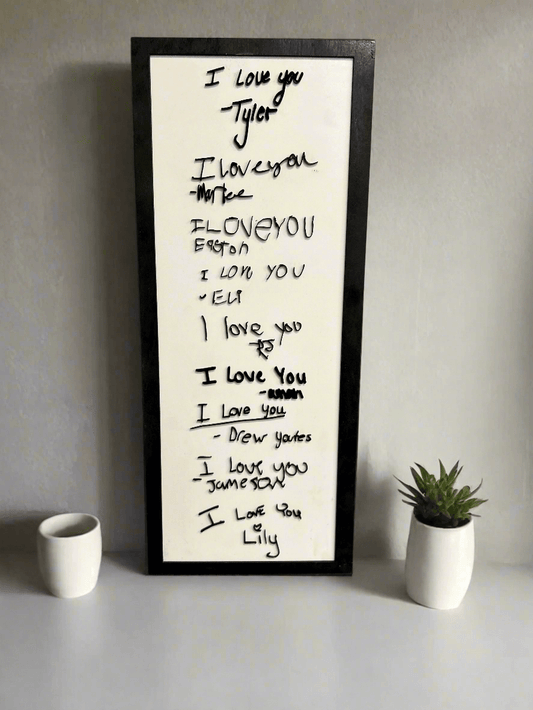 I Love you
-Tyler
I love you
I LOVE YOU
Easton
I LOVE YOU
-ELi
I love you
I Love You
I Love you
- Drew yoates
I Love you
-Jameson
I Love You
Lily